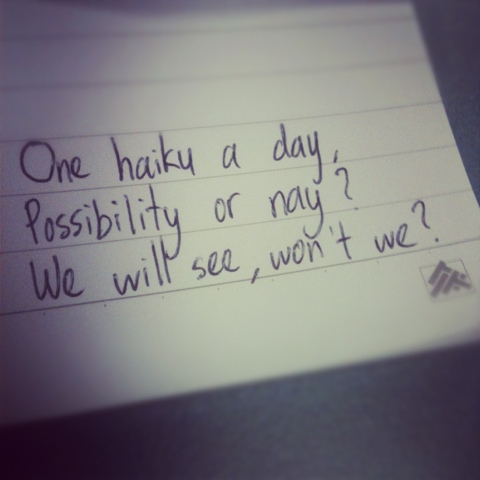 One haiku a day,
Possibility or nay?
We will see, won't we?